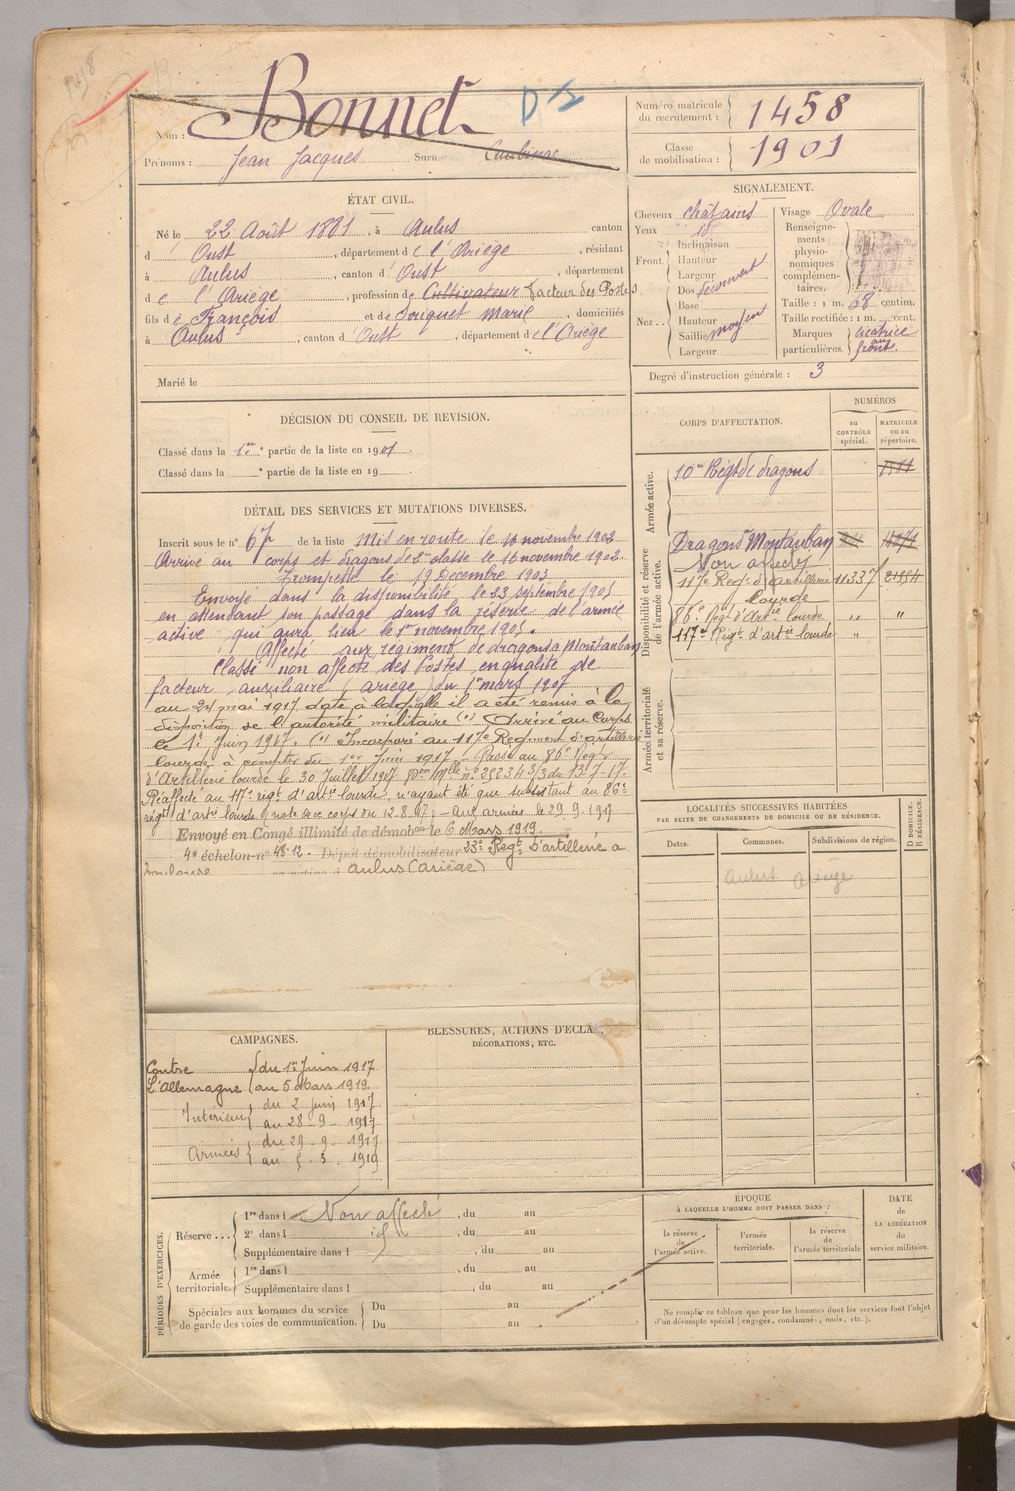 Bonnet
Nom :
Prénoms : Jean Jacques Surn
Numéro matricule du recrutement : 1458
Classe de mobilisation : 1901
ÉTAT CIVIL.
Né le 22 Août 1881, à Aulus canton
d Oust, département de l'Ariège, résidant
à Aulus, canton d'Oust, département
de l'Ariège, profession de Cultivateur facteur des Postes
fils de François et de Souquet Marie, domiciliés
à Aulus, canton d'Oust, département de l'Ariège
Marié le
SIGNALEMENT.
Cheveux châtains
Yeux id
Front Inclinaison
Hauteur
Largeur
Nez Dos
Base
Hauteur
Saillie moyen
Largeur
Visage Ovale
Renseigne-
ments
physio-
nomiques
complémen-
taires.
Taille : 1 m. 68 centim.
Taille rectifiée : 1 m. cent.
Marques particulières. cicatrice au front.
Degré d'instruction générale : 3
DÉCISION DU CONSEIL DE REVISION.
Classé dans la 1re partie de la liste en 1901.
Classé dans la e partie de la liste en 19
DÉTAIL DES SERVICES ET MUTATIONS DIVERSES.
Inscrit sous le n° 67 de la liste Mis en route le 16 novembre 1902
Arrivé au corps et dragons de 2me classe le 16 novembre 1902.
Trompette le 19 Décembre 1903
Envoyé dans la disponibilité le 23 septembre 1905
en attendant son passage dans la réserve de l'armée
active qui aura lieu le 1er novembre 1905.
Affecté aux régiment de dragons à Montauban
Classé non affecté des Postes en qualité de
facteur auxiliaire (Ariège) du 1er mars 1907
au 24 mai 1917 date à laquelle il a été remis à la
disposition de l'autorité militaire (1) Arrivé au Corps
le 1er Juin 1917. (1) Incorporé au 117e Régiment d'artillerie
lourde à compter du 1er Juin 1917 - Passé au 86e Régt
d'Artillerie lourde le 30 Juillet 1917 n° 25234 3/3 du 13.7.17.
Réaffecté au 117e régt d'artie lourde, n'ayant été que subsistant au 86e
régt d'artie lourde (note de ce corps du 12.8.17) - Aux armées le 29.9.1917
Envoyé en Congé illimité de démobon le 6 Mars 1919.
4e échelon n° 48-12. Dépôt démobilisateur 23e Régt d'artillerie à
Toulouse à Aulus (Ariège)
CORPS D'AFFECTATION.
NUMÉROS
au CONTRÔLE spécial.
MATRICULE ou au répertoire.
Armée active.
10me Régt de dragons
Disponibilité et réserve de l'armée active.
Dragons Montauban
Non affecté
117e Régt d'artillerie lourde 11337
86e Régt d'Artie lourde " "
117e Régt d'artie lourde "
Armée territoriale et sa réserve.
LOCALITÉS SUCCESSIVES HABITÉES
PAR SUITE DE CHANGEMENTS DE DOMICILE OU DE RÉSIDENCE.
Dates. Communes. Subdivisions de région. D DOMICILE. R RÉSIDENCE.
Aulus Ariège
CAMPAGNES.
Contre du 1er Juin 1917
L'Allemagne au 5 Mars 1919.
Intérieur du 2 juin 1917
au 28-9-1917
Armées du 29-9-1917
au 5.3.1919
BLESSURES, ACTIONS D'ÉCLAT,
DÉCORATIONS, ETC.
PÉRIODES D'EXERCICES.
Réserve ... 1re dans l Non affecté, du au
2e dans l id, du au
Supplémentaire dans l, du au
Armée territoriale. 1re dans l, du au
Supplémentaire dans l, du au
Spéciales aux hommes du service de garde des voies de communication. Du au
Du au
ÉPOQUE
À LAQUELLE L'HOMME DOIT PASSER DANS :
la réserve de l'armée active.
l'armée territoriale.
la réserve de l'armée territoriale
DATE de LA LIBÉRATION du service militaire.
Ne remplir ce tableau que pour les hommes dont les services font l'objet
d'un décompte spécial (engagés, condamnés, omis, etc.).